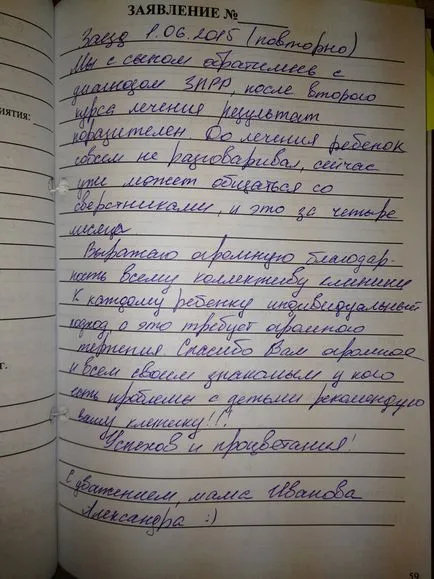 ЗАЯВЛЕНИЕ №
Заезд 1.06.2015 (повторно)
Мы с сыном обратились с
диагнозом ЗПРР, после второго
курса лечения результат
поразителен До лечения ребенок
совсем не разговаривал, сейчас
уже может общаться со
сверстниками, и это за четыре
месяца
Выражаю огромную благодар-
ность всему коллективу клиники
К каждому ребенку индивидуальный
подход, а это требует огромного
терпения Спасибо Вам огромное
и всем своим знакомым у кого
есть проблемы с детьми рекомендую
вашу клинику!!!
Успехов и процветания!
С уважением, мама Иванова
Александра :)
59
иятия:
г.